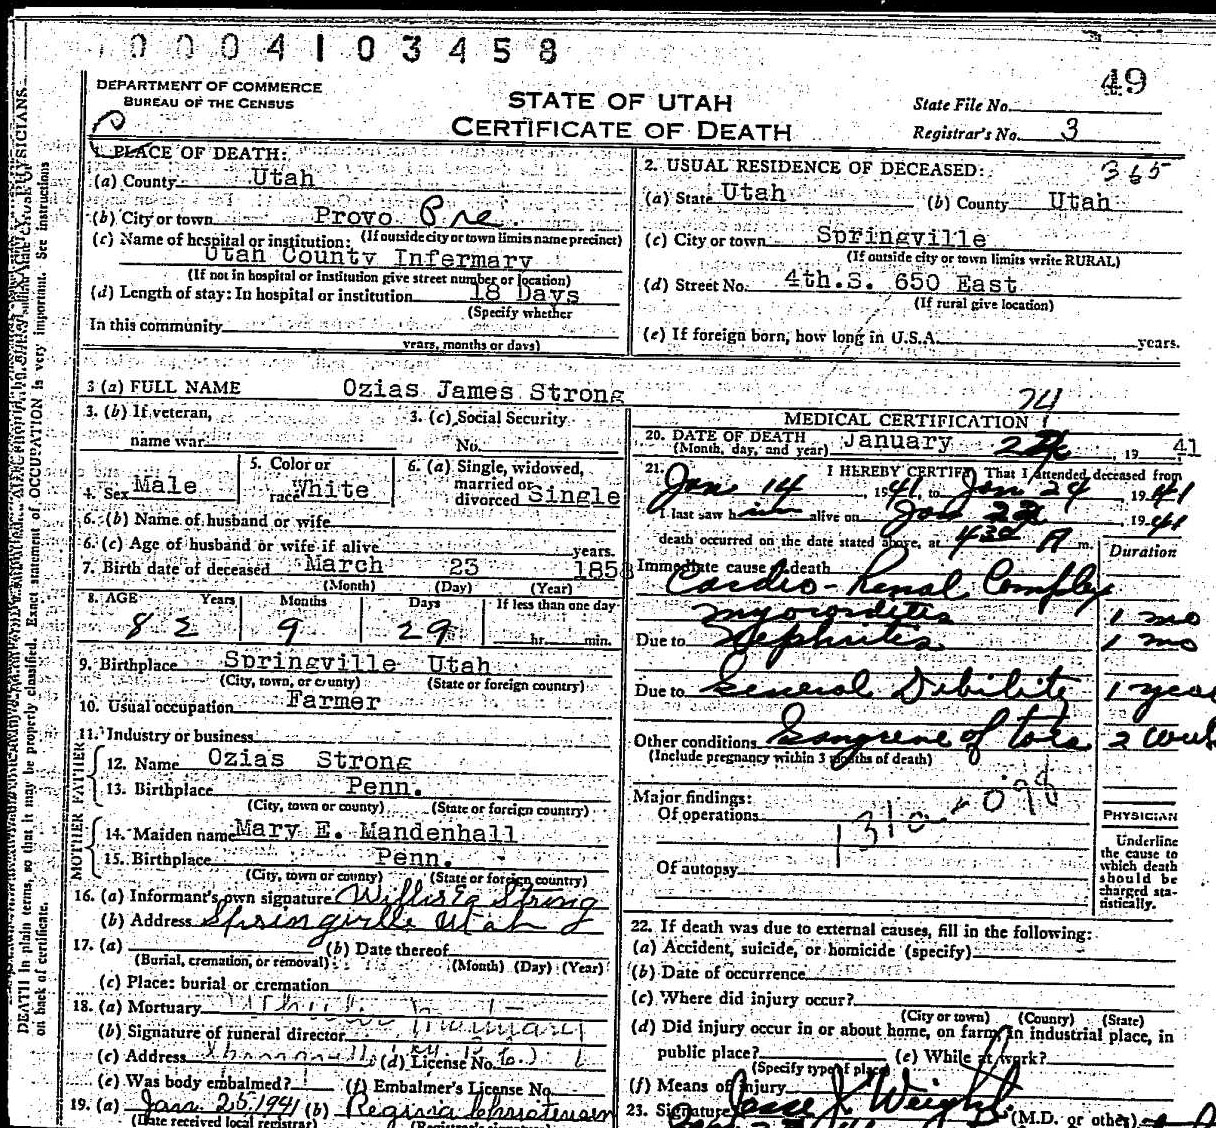 0004103458
49
DEPARTMENT OF COMMERCE
BUREAU OF THE CENSUS
STATE OF UTAH
CERTIFICATE OF DEATH
State File No.
Registrar's No. 3
1. PLACE OF DEATH:
(a) County Utah
(b) City or town Provo Pre.
(If outside city or town limits name precinct)
(c) Name of hospital or institution:
Utah County Infermary
(If not in hospital or institution give street number or location)
(d) Length of stay: In hospital or institution 18 Days
(Specify whether
In this community
years, months or days)
2. USUAL RESIDENCE OF DECEASED: 365
(a) State Utah (b) County Utah
(c) City or town Springville
(If outside city or town limits write RURAL)
(d) Street No. 4th.S. 650 East
(If rural give location)
(e) If foreign born, how long in U.S.A. years.
3 (a) FULL NAME Ozias James Strong
3. (b) If veteran, name war
3. (c) Social Security No.
4. Sex Male
5. Color or race White
6. (a) Single, widowed, married or divorced Single
6. (b) Name of husband or wife
6. (c) Age of husband or wife if alive years.
7. Birth date of deceased March 23 1858
(Month) (Day) (Year)
8. AGE Years Months Days If less than one day
82 9 29 hr. min.
9. Birthplace Springville Utah
(City, town, or county) (State or foreign country)
10. Usual occupation Farmer
11. Industry or business
FATHER
12. Name Ozias Strong
13. Birthplace Penn.
(City, town or county) (State or foreign country)
MOTHER
14. Maiden name Mary E. Mandenhall
15. Birthplace Penn.
(City, town or county) (State or foreign country)
16. (a) Informant's own signature Strong
(b) Address Springville Utah
17. (a) (b) Date thereof
(Burial, cremation, or removal) (Month) (Day) (Year)
(c) Place: burial or cremation
18. (a) Mortuary
(b) Signature of funeral director
(c) Address (d) License No.
(e) Was body embalmed? (f) Embalmer's License No.
19. (a) Jan. 25, 1941 (b) Regina Christensen
(Date received local registrar) (Registrar's signature)
74
MEDICAL CERTIFICATION
20. DATE OF DEATH January 19 41
(Month, day, and year)
21. I HEREBY CERTIFY That I attended deceased from
Jan 14, 1941, to Jan 24 1941
I last saw him alive on Jan 1941
death occurred on the date stated above, at 430 A m.
Duration
Immediate cause of death
Cardio-Renal Complex
myocorditis 1 mo
Due to Nephritis 1 mo
Due to General Debilite 1 year
Other conditions Gangrene of toes 2 week
(Include pregnancy within 3 months of death)
Major findings:
Of operations
131a x 098
Of autopsy
PHYSICIAN
Underline
the cause to
which death
should be
charged sta-
tistically.
22. If death was due to external causes, fill in the following:
(a) Accident, suicide, or homicide (specify)
(b) Date of occurrence
(c) Where did injury occur?
(City or town) (County) (State)
(d) Did injury occur in or about home, on farm, in industrial place, in
public place? (e) While at work?
(Specify type of place)
(f) Means of injury
23. Signature Jesse Weight (M.D. or other)
DEATH in plain terms, so that it may be properly classified. Exact statement of OCCUPATION is very important. See instructions
on back of certificate.